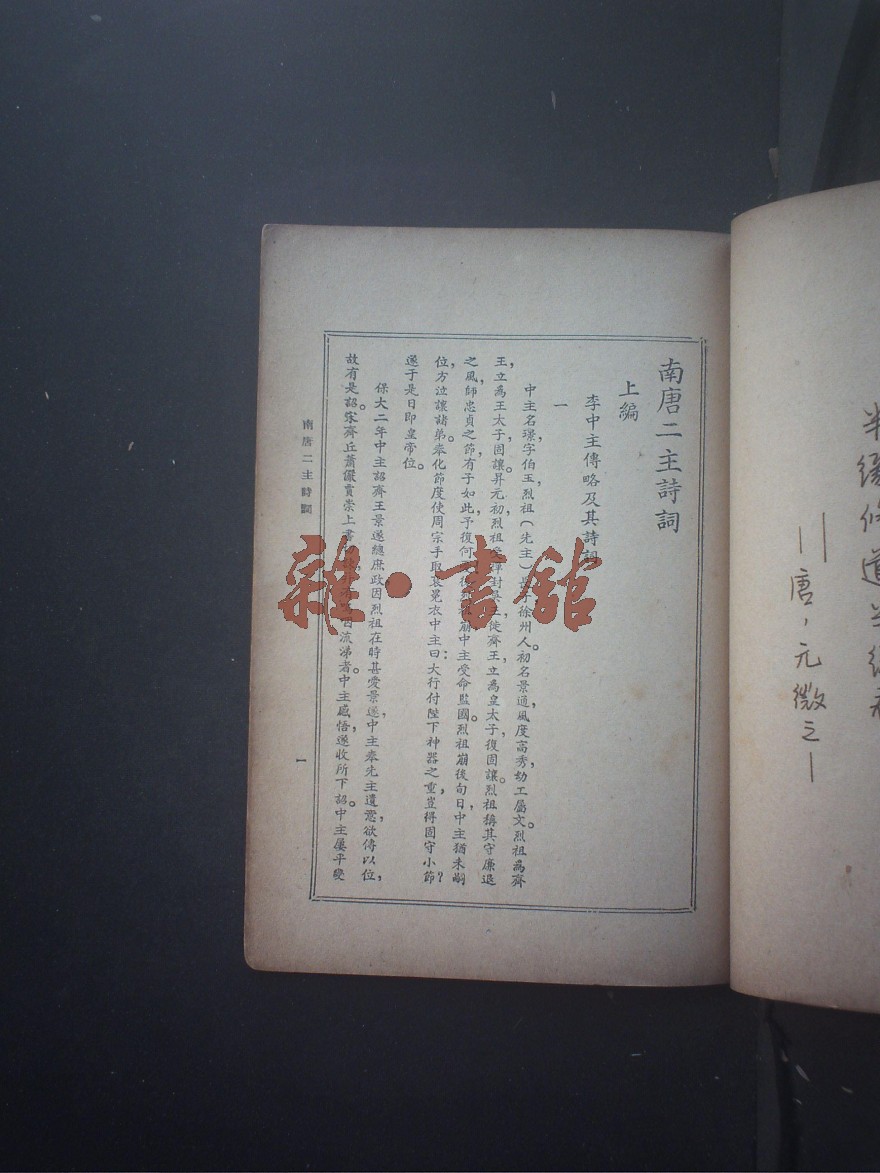 半緣修道半緣
||唐,元微之|
南唐二主詩詞
上編
李中主傳略及其詩詞
一
中主名璟,字伯玉,烈祖(先主)長子徐州人。初名景通,風度高秀,幼工屬文。烈祖為齊
王,立為王太子,固讓。昇元初,烈祖受禪,封吳王,徙齊王,立為皇太子,復固讓。烈祖稱其守廉退
之風,師忠貞之節,有子如此,予復何 崩,中主受命監國。烈祖崩後旬日,中主猶未嗣
位,方泣讓諸弟。奉化節度使周宗手取袞冕衣中主曰:大行付陛下神器之重,豈得固守小節?
遂于是日即皇帝位。
保大二年,中主詔齊王景遂總庶政,因烈祖在時甚愛景遂,中主奉先主遺意,欲傳以位,
故有是詔。宋齊丘蕭儼賈崇上書 流涕者。中主感悟,遂收所下詔。中主屢平變
南唐二主詩詞
一
雜·書館